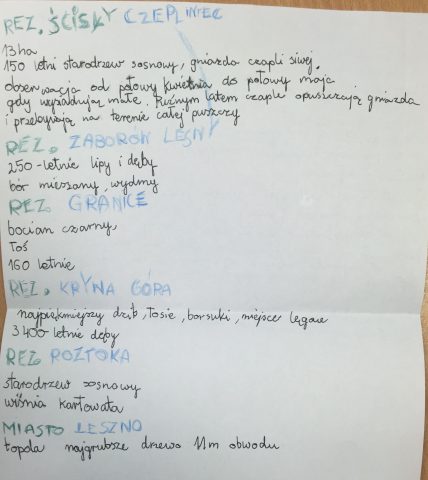 REZ. ŚCISŁY CZEPLINIEC
13ha
150 letni starodrzew sosnowy, gniazda czapli siwej.
obserwacja od połowy kwietnia do połowy maja
gdy wysiadują małe. Późnym latem czaple opuszczają gniazda
i przebywają na terenie całej puszczy
REZ. ZABORÓW LEŚNY
250-letnie lipy i dęby
bór mieszany, wydmy
REZ. GRANICE
bocian czarny,
łoś
160 letnie
REZ. KRYNA GÓRA
najpiękniejszy drzb, łosie, borsuki, miejsce lęgowe
3 400-letnie dęby
REZ. ROZTOKA
starodrzew sosnowy
wiśnia karłowata
MIASTO LESZNO
topola najgrubsze drzewo 11m obwodu